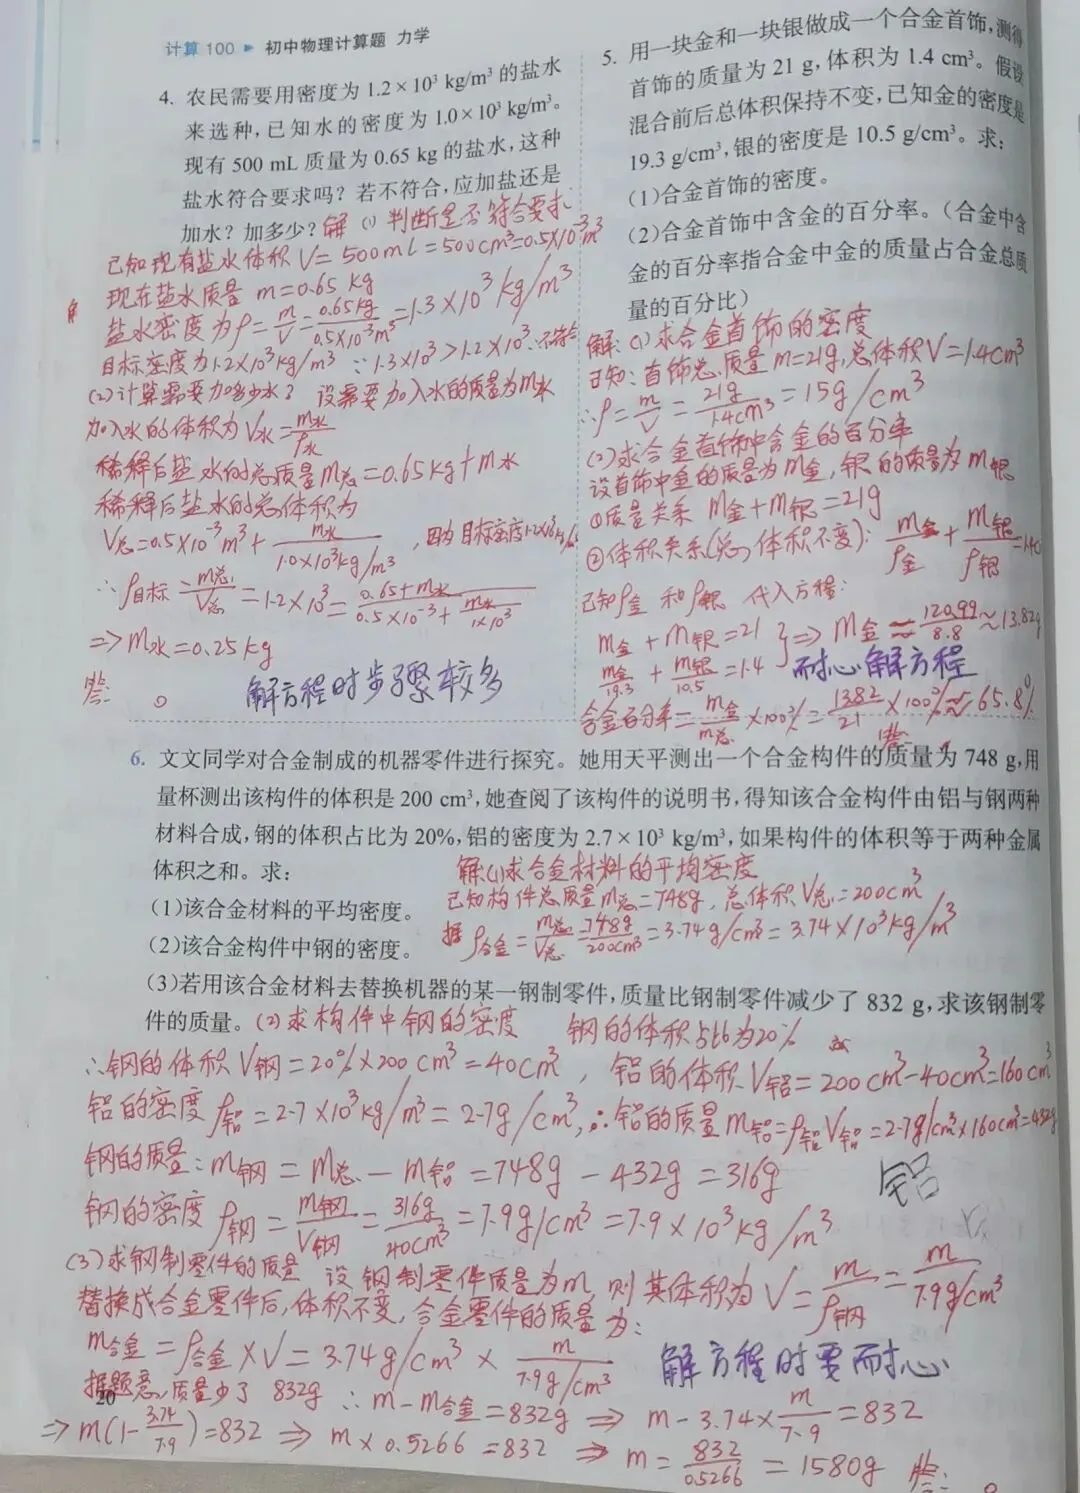 计算 100 ▶ 初中物理计算题 力学
4. 农民需要用密度为 1.2×10³ kg/m³ 的盐水
来选种,已知水的密度为 1.0×10³ kg/m³。
现有 500 mL 质量为 0.65 kg 的盐水,这种
盐水符合要求吗？若不符合,应加盐还是
加水？加多少？解 (1) 判断是否符合要求
已知现有盐水体积 V=500ml=500cm³=0.5×10⁻³m³
现在盐水质量 m=0.65 kg
盐水密度为ρ=m/V=0.65kg/0.5×10⁻³m³=1.3×10³kg/m³
目标密度为1.2×10³kg/m³ ∵1.3×10³>1.2×10³∴不符合
(2)计算需要加多少水？ 设需要加入水的质量为m水
加入水的体积为V水=m水/ρ水
稀释后盐水的总质量m总=0.65kg+m水
稀释后盐水的总体积为
V总=0.5×10⁻³m³+m水/1.0×10³kg/m³,因为目标密度1.2×10³kg/m³
∴ρ目标=m总/V总=1.2×10³=0.65+m水/0.5×10⁻³+m水/1×10³
⇒m水=0.25kg
答: 。
解方程时步骤较多
5. 用一块金和一块银做成一个合金首饰,测得
首饰的质量为 21 g,体积为 1.4 cm³。假设
混合前后总体积保持不变,已知金的密度是
19.3 g/cm³,银的密度是 10.5 g/cm³。求:
(1)合金首饰的密度。
(2)合金首饰中含金的百分率。(合金中含
金的百分率指合金中金的质量占合金总质
量的百分比)
解:(1)求合金首饰的密度
已知:首饰总质量m=21g,总体积V=1.4cm³
∴ρ=m/V=21g/1.4cm³=15g/cm³
(2)求合金首饰中含金的百分率
设首饰中金的质量为m金,银的质量为m银
①质量关系 m金+m银=21g
②体积关系(总体积不变):m金/ρ金+m银/ρ银=1.4
已知ρ金和ρ银 代入方程:
m金+m银=21
m金/19.3+m银/10.5=1.4 }⇒m金≈120.99/8.8≈13.82g
耐心解方程
含金百分率=m金/m总×100%=13.82/21×100%≈65.8%
答: 。
6. 文文同学对合金制成的机器零件进行探究。她用天平测出一个合金构件的质量为 748 g,用
量杯测出该构件的体积是 200 cm³,她查阅了该构件的说明书,得知该合金构件由铝与钢两种
材料合成,钢的体积占比为 20%,铝的密度为 2.7×10³ kg/m³,如果构件的体积等于两种金属
体积之和。求:
(1)该合金材料的平均密度。
(2)该合金构件中钢的密度。
(3)若用该合金材料去替换机器的某一钢制零件,质量比钢制零件减少了 832 g,求该钢制零
件的质量。
解:(1)求合金材料的平均密度
已知构件总质量m总=748g,总体积V总=200cm³
ρ合金=m总/V总=748g/200cm³=3.74g/cm³=3.74×10³kg/m³
(2)求构件中钢的密度 钢的体积占比为20%
∴钢的体积V钢=20%×200cm³=40cm³,铝的体积V铝=200cm³-40cm³=160cm³
铝的密度ρ铝=2.7×10³kg/m³=2.7g/cm³,∴铝的质量m铝=ρ铝V铝=2.7g/cm³×160cm³=432g
钢的质量:m钢=m总-m铝=748g-432g=316g
铝
钢的密度ρ钢=m钢/V钢=316g/40cm³=7.9g/cm³=7.9×10³kg/m³
(3)求钢制零件的质量 设钢制零件质量为m,则其体积为V=m/ρ钢=m/7.9g/cm³
替换成合金零件后,体积不变,合金零件的质量为:
m合金=ρ合金×V=3.74g/cm³×m/7.9g/cm³
解方程时要耐心
据题意,质量少了832g ∴m-m合金=832g⇒m-3.74×m/7.9=832
⇒m(1-3.74/7.9)=832⇒m×0.5266=832⇒m=832/0.5266=1580g 答: 。
20